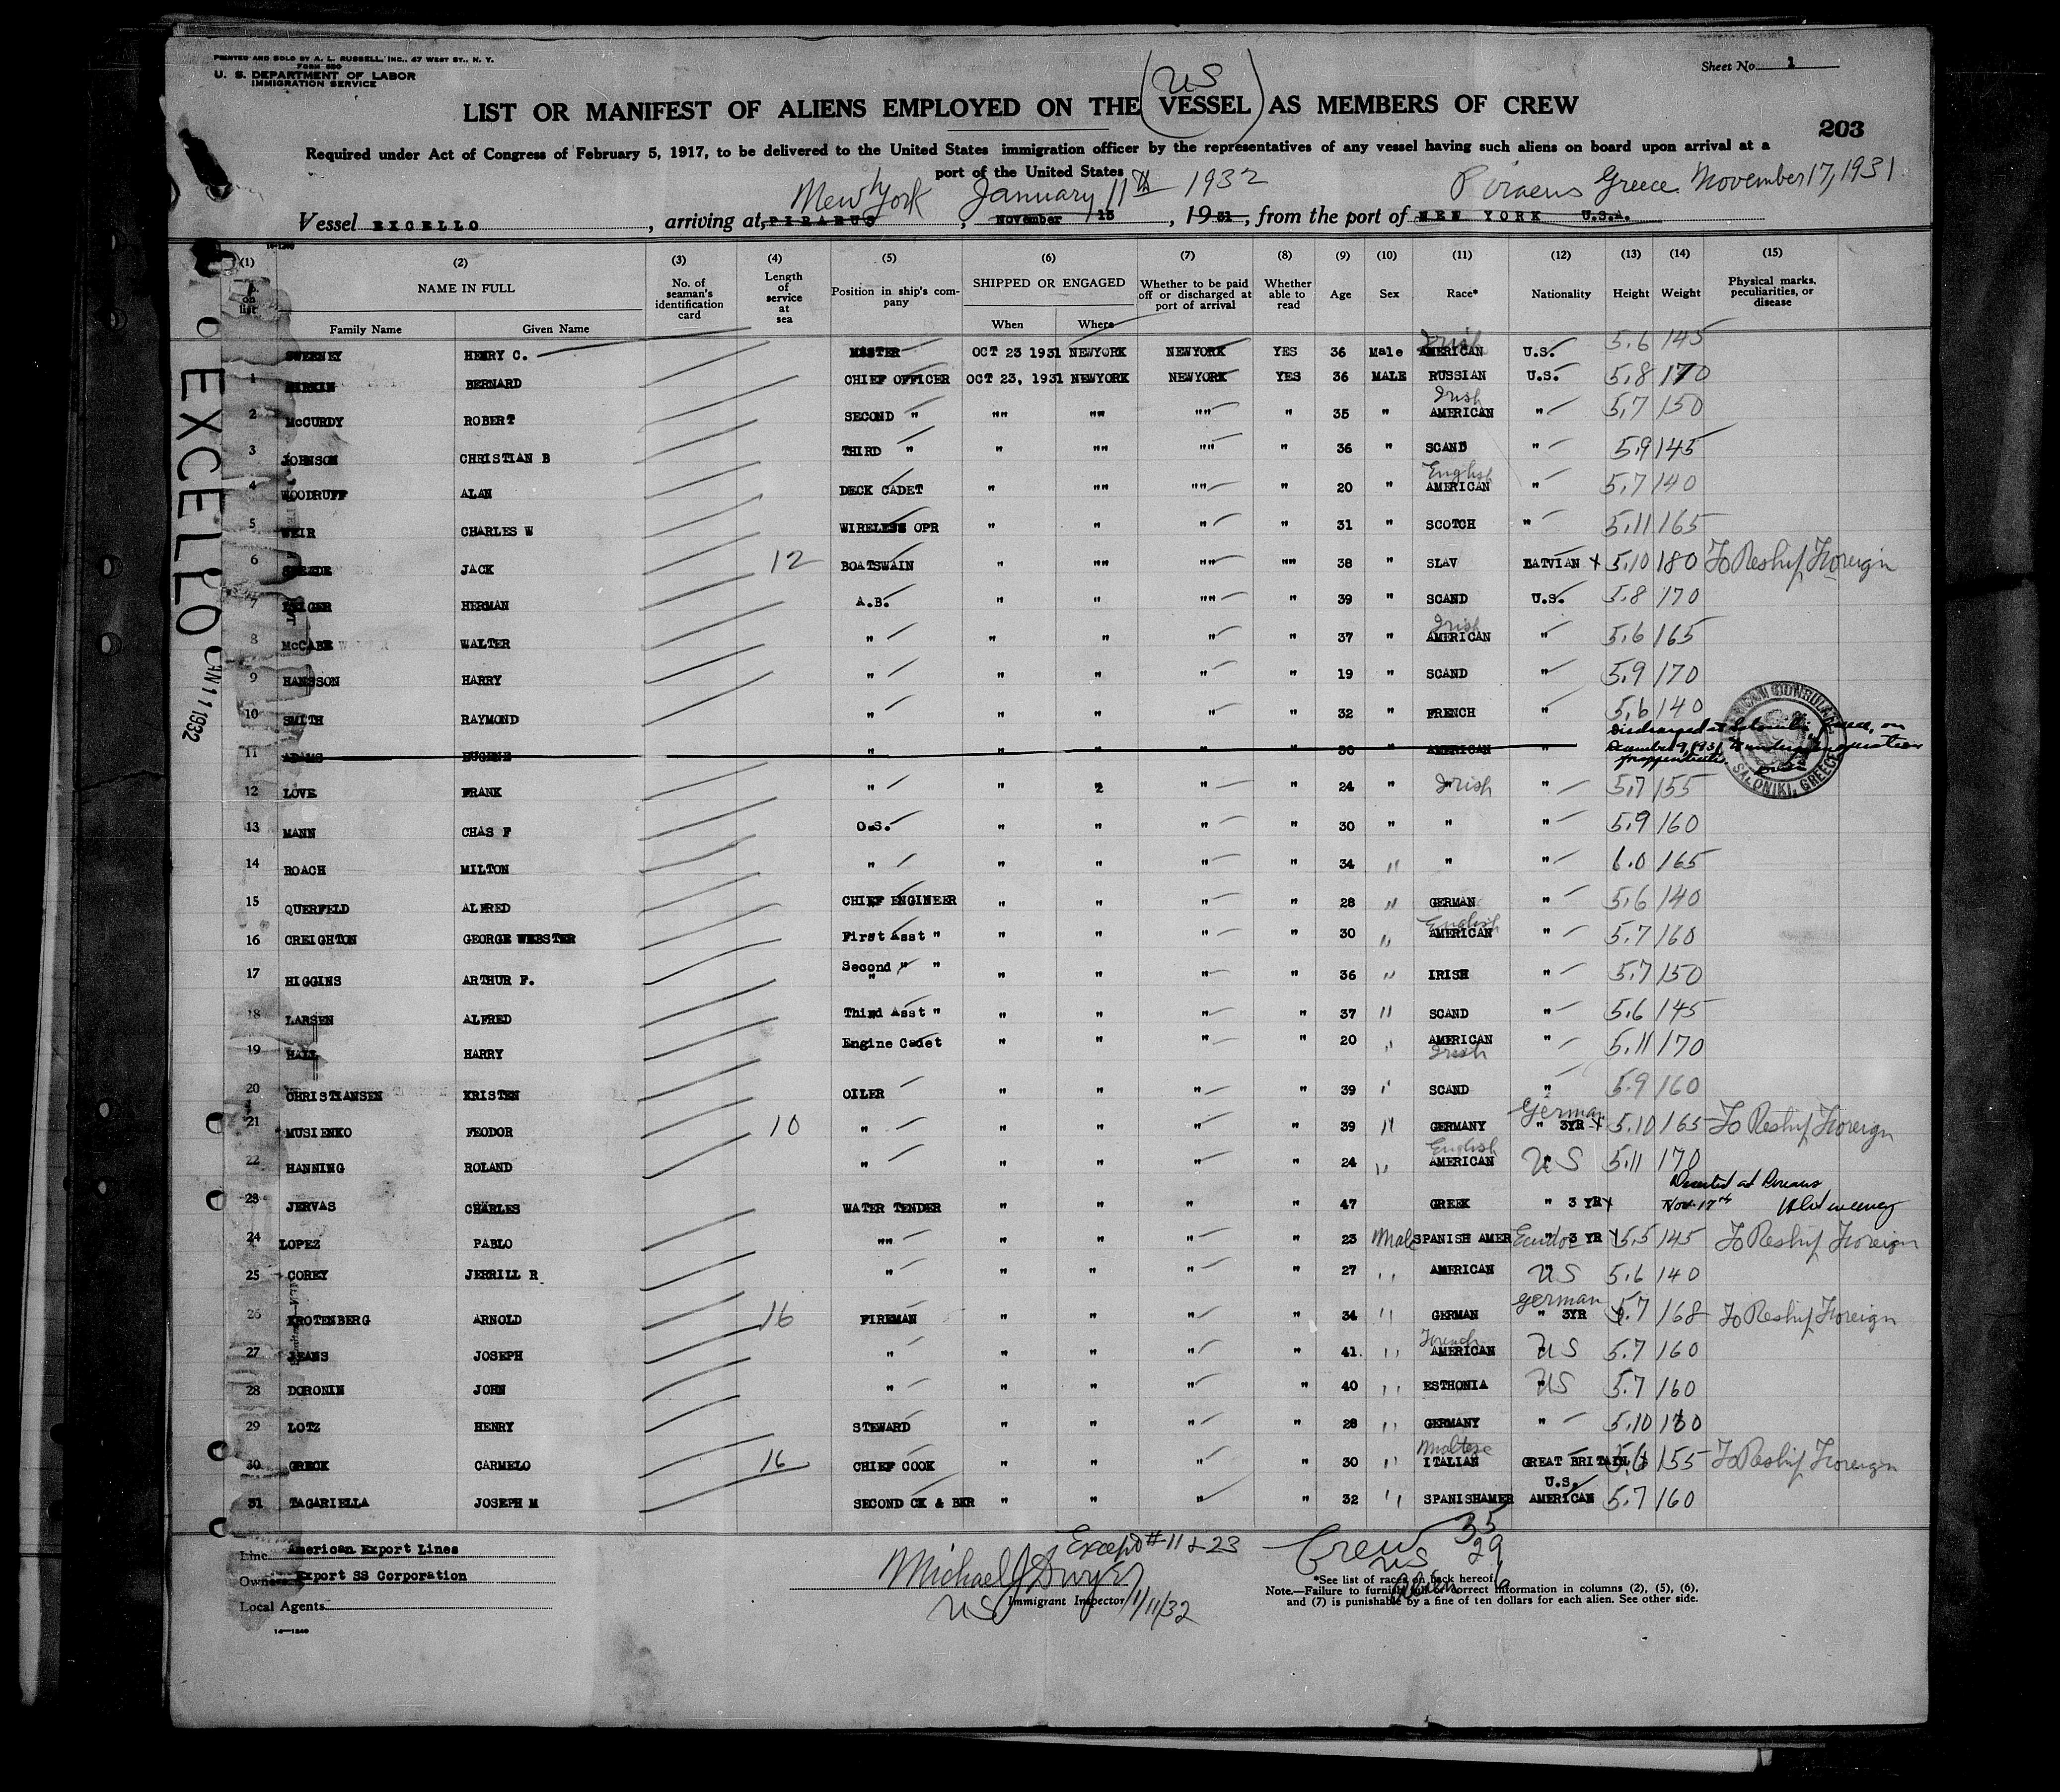 PRINTED AND SOLD BY A. L. RUSSELL, INC., 47 WEST ST., N. Y.
FORM 680
U. S. DEPARTMENT OF LABOR
IMMIGRATION SERVICE
Sheet No. 1
US
LIST OR MANIFEST OF ALIENS EMPLOYED ON THE VESSEL AS MEMBERS OF CREW
203
Required under Act of Congress of February 5, 1917, to be delivered to the United States immigration officer by the representatives of any vessel having such aliens on board upon arrival at a
port of the United States
New York January 11th 1932 Piraeus Greece November 17, 1931
Vessel EXCELLO, arriving at, PIRAEUS, November 13, 1931, from the port of NEW YORK U.S.A.
(1) (2) (3) (4) (5) (6) (7) (8) (9) (10) (11) (12) (13) (14) (15)
No. on list NAME IN FULL No. of seaman's identification card Length of service at sea Position in ship's company SHIPPED OR ENGAGED Whether to be paid off or discharged at port of arrival Whether able to read Age Sex Race* Nationality Height Weight Physical marks, peculiarities, or disease
Family Name Given Name When Where
EXCELLO
JAN 11 1932
SWEENEY HENRY C. MASTER OCT 23 1931 NEWYORK NEWYORK YES 36 Male AMERICAN Irish U.S. 5.6 145
1 BERNARD CHIEF OFFICER OCT 23, 1931 NEWYORK NEWYORK YES 36 MALE RUSSIAN U.S. 5,8 170
2 McCURDY ROBERT SECOND " "" "" "" " 35 " Irish AMERICAN " 5,7 150
3 JOHNSON CHRISTIAN B THIRD " " "" "" " 36 " SCAND " 5.9 145
4 WOODRUFF ALAN DECK CADET " "" "" " 20 " English AMERICAN " 5,7 140
5 WEIR CHARLES W WIRELESS OPR " " " " 31 " SCOTCH " 5.11 165
6 JACK 12 BOATSWAIN " "" "" "" 38 " SLAV LATVIAN x 5.10 180 To Reship Foreign
7 HERMAN A.B. " " "" " 39 " SCAND U.S. 5.8 170
8 McCABE WALTER " " " " " 37 " Irish AMERICAN " 5.6 165
9 HANSSON HARRY " " " " " 19 " SCAND " 5.9 170
10 SMITH RAYMOND " " " " " 32 " FRENCH " 5.6 140
11 ADAMS EUGENE " " " " " 30 " AMERICAN " Discharged at Saloniki, Greece, on December 9, 1931 to undergo operation for appendicitis.
AMERICAN CONSULATE SALONIKI, GREECE
12 LOVE FRANK " " 2 " " 24 " Irish " 5.7 155
13 MANN CHAS F O.S. " " " " 30 " " " 5.9 160
14 ROACH MILTON " " " " " 34 " " " 6.0 165
15 QUERFELD ALFRED CHIEF ENGINEER " " " " 28 " GERMAN " 5.6 140
16 CREIGHTON GEORGE WEBSTER First Asst " " " " " 30 " English AMERICAN " 5.7 160
17 HIGGINS ARTHUR F. Second " " " " " " 36 " IRISH " 5.7 150
18 LARSEN ALFRED Third Asst " " " " " 37 " SCAND " 5.6 145
19 HALL HARRY Engine Cadet " " " " 20 " AMERICAN Irish " 5.11 170
20 CHRISTIANSEN KRISTEN OILER " " " " 39 " SCAND " 5.9 160
21 MUSIENKO FEODOR 10 " " " " " 39 " GERMANY German " 3YR x 5.10 165 To Reship Foreign
22 HANNING ROLAND " " " " " 24 " English AMERICAN US 5.11 170
23 JERVAS CHARLES WATER TENDER " " " " 47 GREEK " 3 YR x Deserted at Piraeus Nov. 17th
24 LOPEZ PABLO "" " " " " 23 Male SPANISH AMER Ecudor " 3 YR x 5.5 145 To Reship Foreign
25 COREY JERRILL R " " " " " 27 " AMERICAN US 5.6 140
26 KROTENBERG ARNOLD 16 FIREMAN " " " " 34 " GERMAN german " 3YR x 5.7 168 To Reship Foreign
27 JEANS JOSEPH " " " " " 41 " French AMERICAN US 5.7 160
28 DORONIN JOHN " " " " " 40 " ESTHONIA US 5.7 160
29 LOTZ HENRY STEWARD " " " " 28 " GERMANY " 5.10
30 GRECK CARMELO 16 CHIEF COOK " " " " 30 " Maltese ITALIAN GREAT BRITAIN x 5.6 155 To Reship Foreign
31 TAGARIELLA JOSEPH M SECOND CK & BKR " " " " 32 " SPANISHAMER U.S. AMERICAN 5.7 160
Line American Export Lines
Owners Export SS Corporation
Local Agents
16—1240
Except #11 & 23
Michael J Dwyer
US Immigrant Inspector 1/11/32
Crew 35
US 29
Alien 6
*See list of races on back hereof.
Note.—Failure to furnish full or correct information in columns (2), (5), (6),
and (7) is punishable by a fine of ten dollars for each alien. See other side.